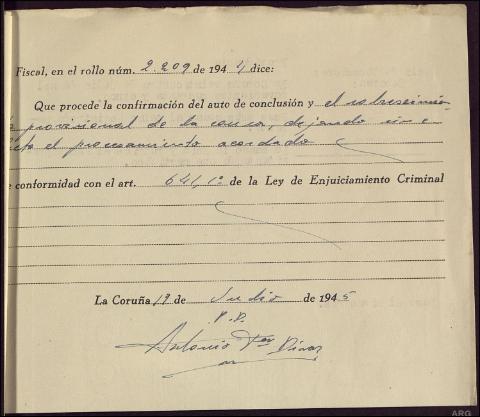 Fiscal, en el rollo núm. 2.209 de 1944 dice:
Que procede la confirmación del auto de conclusión y el sobreseimien-
to provisional de la causa, dejando sin e-
fecto el procesamiento acordado
e conformidad con el art. 641, 1º de la Ley de Enjuiciamiento Criminal
La Coruña 19 de Julio de 1945
P.D.
Antonio
ARG